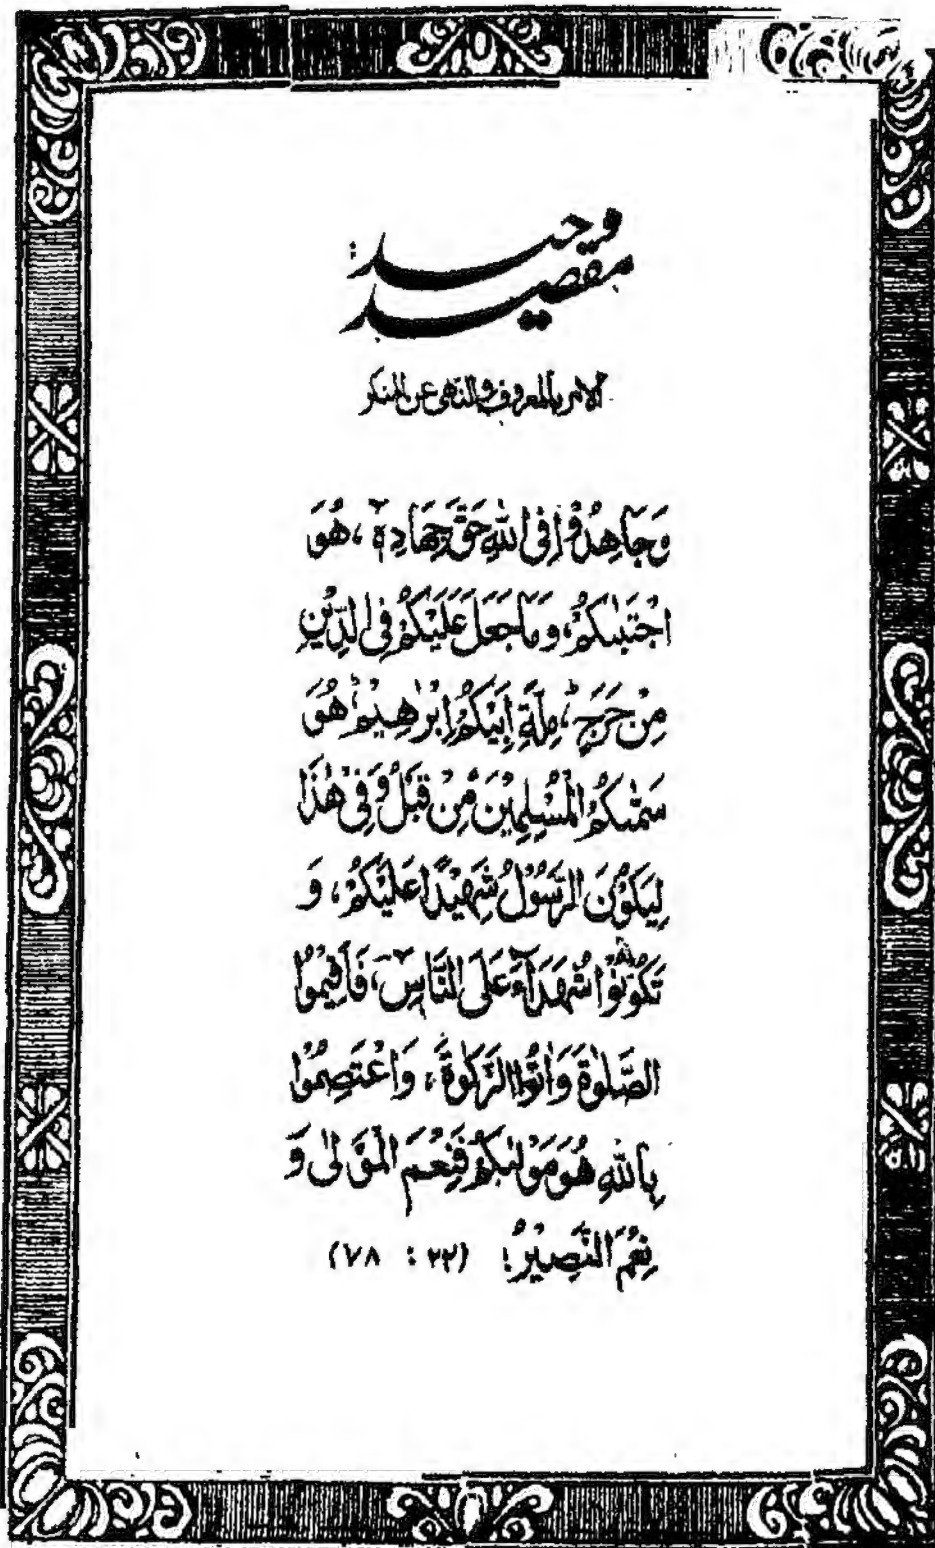 مقصد وحید:
الامر بالمعروف والنهی عن المنکر
وَجَاهِدُوْا فِی اللّٰهِ حَقَّ جِهَادِهٖ، هُوَ
اجْتَبٰىكُمْ، وَمَا جَعَلَ عَلَيْكُمْ فِی الدِّيْنِ
مِنْ حَرَجٍ ؕ، مِلَّةَ اَبِيْكُمْ اِبْرٰهِيْمَ ؕ هُوَ
سَمّٰىكُمُ الْمُسْلِمِيْنَ مِنْ قَبْلُ وَفِیْ هٰذَا
لِيَكُوْنَ الرَّسُوْلُ شَهِيْدًا عَلَيْكُمْ، وَ
تَكُوْنُوْا شُهَدَآءَ عَلَى النَّاسِ، فَاَقِيْمُوا
الصَّلٰوةَ وَاٰتُوا الزَّكٰوةَ، وَاعْتَصِمُوْا
بِاللّٰهِ هُوَ مَوْلٰىكُمْ فَنِعْمَ الْمَوْلٰى وَ
نِعْمَ النَّصِيْرُ! (۲۲ : ۷۸)